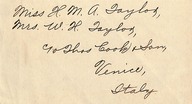 Miss H. M. A. Taylor,
Mrs. W. H. Taylor,
c/o Thos Cook & Son,
Venice,
Italy